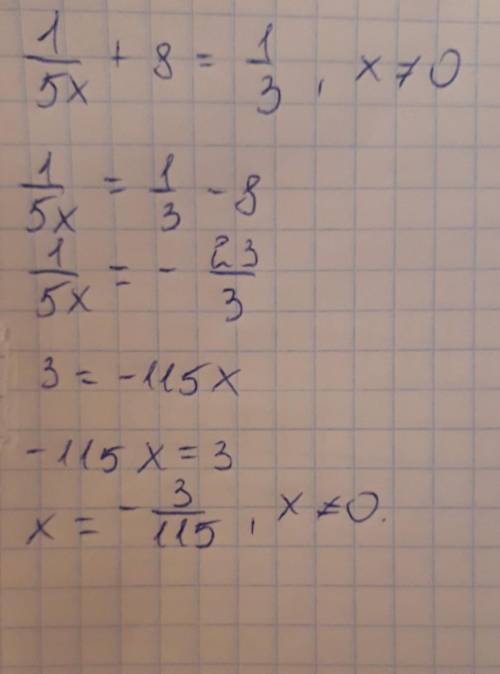 1/5x + 8 = 1/3, x ≠ 0
1/5x = 1/3 - 8
1/5x = - 23/3
3 = -115x
-115x = 3
x = - 3/115, x ≠ 0.